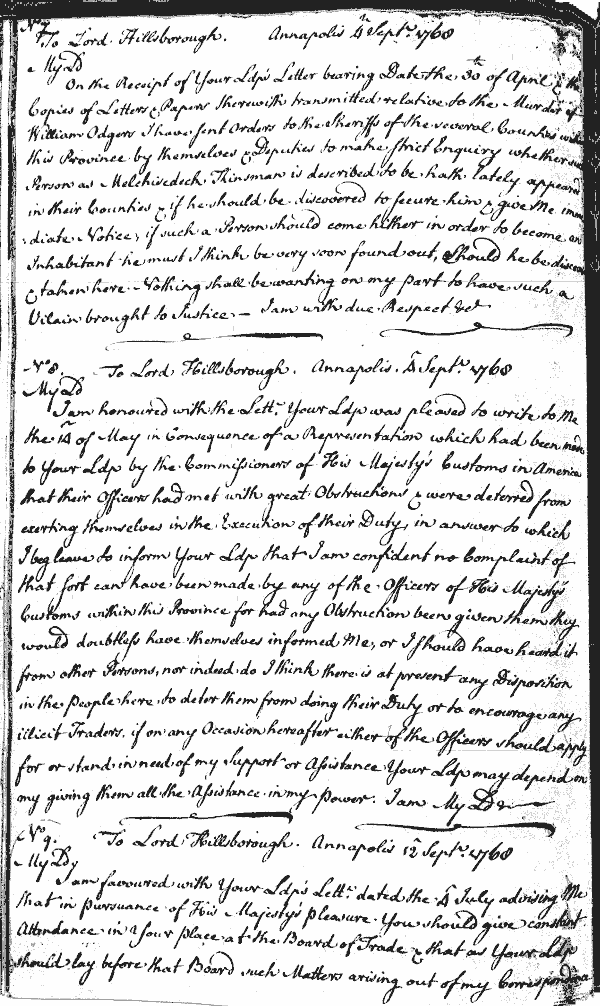 No 7.
To Lord Hillsborough. Annapolis 4th Septr. 1768
My Ld
On the Receipt of Your Ldps Letter bearing Date the 30th of April & the
Copies of Letters & Papers therewith transmitted relative to the Murder of
William Odgers I have sent Orders to the Sheriffs of the several Counties
this Province by themselves & Deputies to make strict Enquiry whether
Person as Melchisedeck Kinsman is described to be hath lately appeared
in their Counties & if he should be discovered to secure him & give Me imme
diate Notice, if such a Person should come hither in order to become an
Inhabitant he must I think be very soon found out, Should he be
& taken here Nothing shall be wanting on my part to have such a
Vilain brought to Justice. — I am with due Respect &c
No 8. To Lord Hillsborough. Annapolis. 4 Septr. 1768
My Ld
I am honoured with the Lettr. Your Ldp was pleased to write to Me
the of May in Consequence of a Representation which had been made
to Your Ldp by the Commissioners of His Majesty's Customs in America
that their Officers had met with great Obstructions & were deterred from
exerting themselves in the Execution of their Duty, in answer to which
I beg leave to inform Your Ldp that I am confident no Complaint of
that sort can have been made by any of the Officers of His Majesty's
Customs within this Province for had any Obstruction been given them they
would doubtless have themselves informed Me, or I should have heard it
from other Persons, nor indeed do I think there is at present any Disposition
in the People here to deter them from doing their Duty or to encourage any
illicit Traders, if on any Occasion hereafter either of the Officers should apply
for or stand in need of my Support or Assistance Your Ldp may depend on
my giving them all the Assistance in my Power. I am My Ld &c
No 9. To Lord Hillsborough. Annapolis 12 Septr. 1768
My Ld
I am favoured with Your Ldps Lettr. dated the 4 July advising Me
that in Pursuance of His Majesty's Pleasure You should give constant
Attendance in Your place at the Board of Trade & that as Your Ldp
should lay before that Board such Matters arising out of my Correspondence